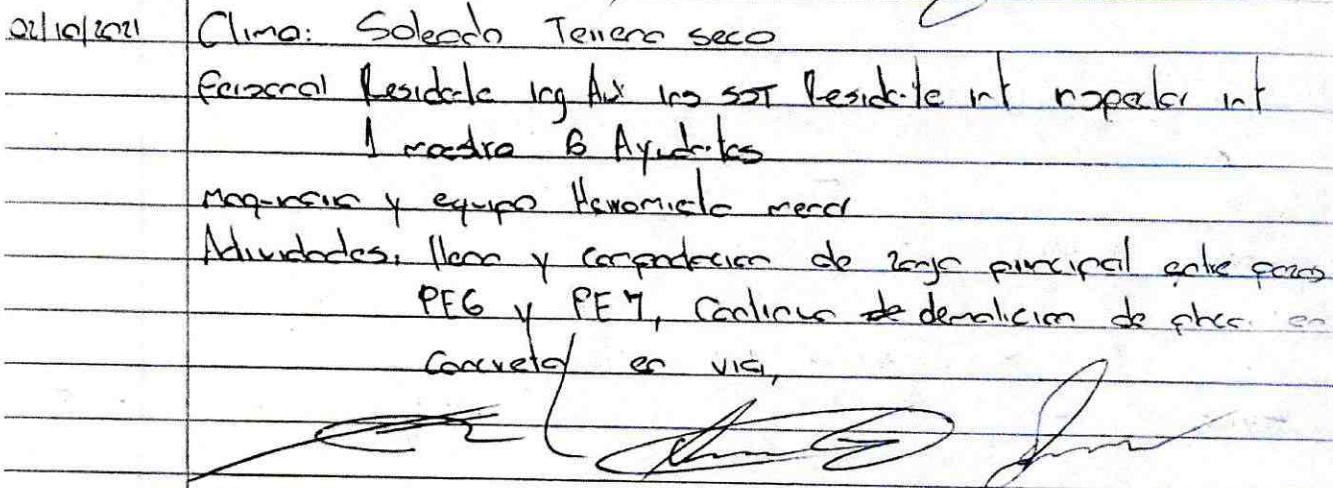 02/10/2021 Clima: Soleado Terreno seco
Personal Residente Ing Aux Ing SST Residente int inspector int
1 maestro 6 Ayudantes
Maquinaria y equipo Herramienta menor
Actividades: lleno y compactacion de zanja principal entre pozos
PE6 y PE7, Continua de demolicion de placa en
Concreto en via,